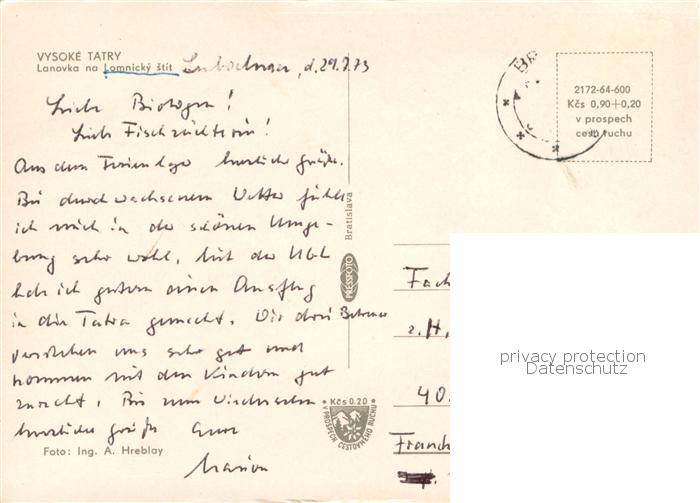 VYSOKÉ TATRY
Lanovka na Lomnický štít
d. 29.7.73
Liebe Biologen!
Liebe Fischzüchterin!
Aus dem Ferienlager herzliche Grüße.
Bei durchwachsenem Wetter fühle
ich mich in der schönen Umge-
bung sehr wohl. Mit der
habe ich gestern einen Ausflug
in die Tatra gemacht. Wir drei Betreuer
verstehen uns sehr gut und
kommen mit den Kindern gut
zurecht. Bis zum Wiedersehen
herzliche Grüße Eure
Marion
Foto: Ing. A. Hreblay
Bratislava
PRESSFOTO
Kčs 0.20
V PROSPECH CESTOVNÉHO RUCHU
2172-64-600
Kčs 0,90+0,20
v prospech
cest. ruchu
BR
Fach
z.H.
40
Franc
privacy protection
Datenschutz